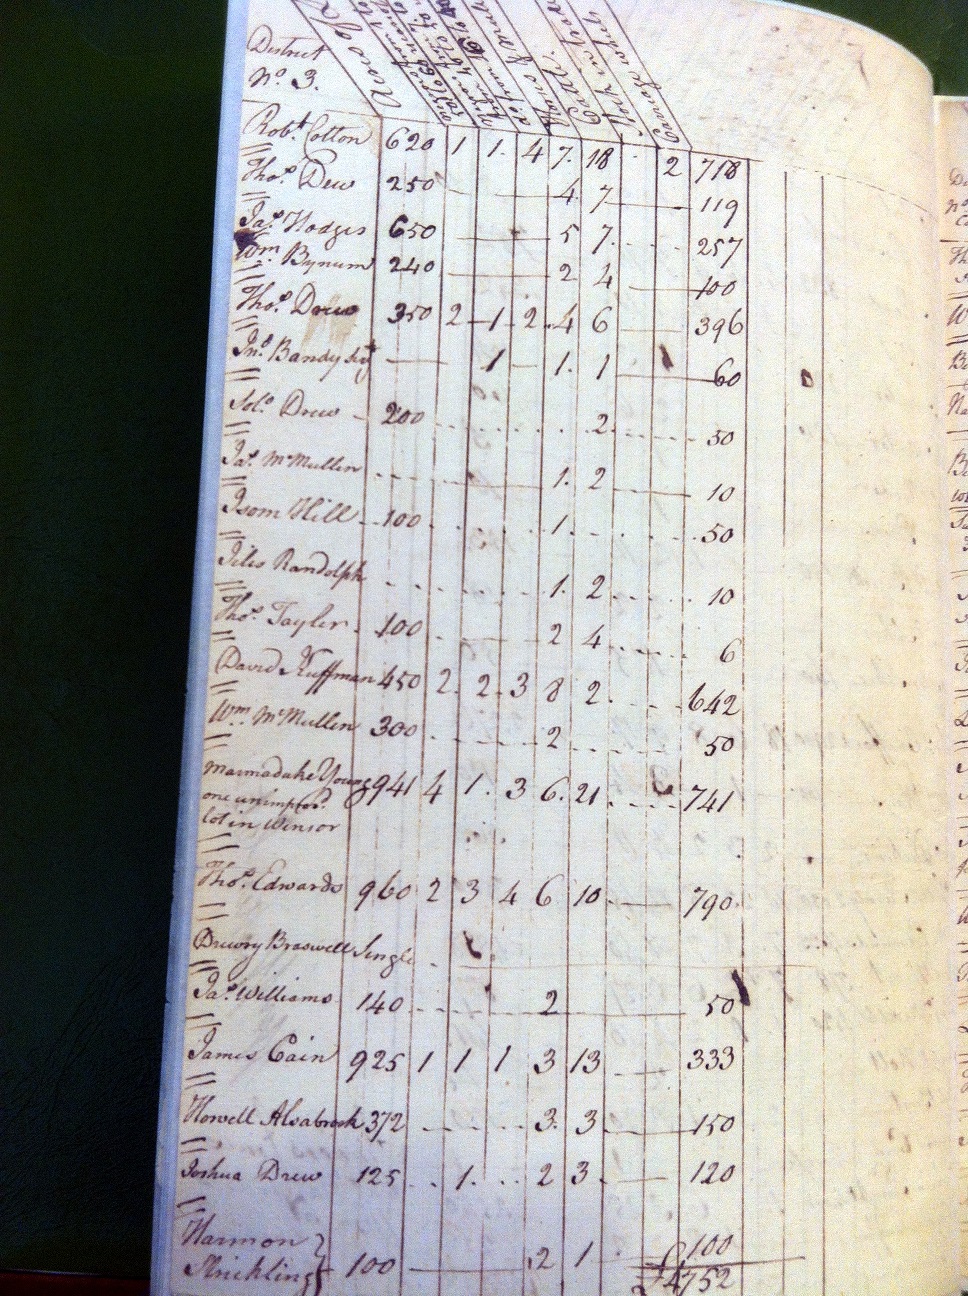 District
No. 3.
Robt Cotton 620 1 1. 4 7. 18 2 718
Thos. Dew 250 4 7 119
Jas. Hodges 650 5 7 257
Wm Bynum 240 2 4 100
Thos. Drew 350 2 1 2 4 6 396
Jno. Bandy 1 1. 1 60
Solo. Drew 200 2. 50
Jas. McMullin 1. 2 10
Isom Hill 100 1. 50
Jiles Randolph 1. 2 10
Thos. Tayler 100 2 4 6
David Huffman 450 2. 2. 3 8 2. 642
Wm. McMullin 300 2 50
Marmaduke Young 941 4 1. 3 6. 21 741
one unimpro.d
lot in Winsor
Thos. Edwards 960 2 3 4 6 10 790
Drewry Braswell Single
Jas. Williams 140 2 50
James Cain 925 1 1 1 3 13 333
Howell Alsabrook 372 3. 3 150
Joshua Drew 125 1. 2 3 120
Harmon
Strickling 100 2 1 100
£4752